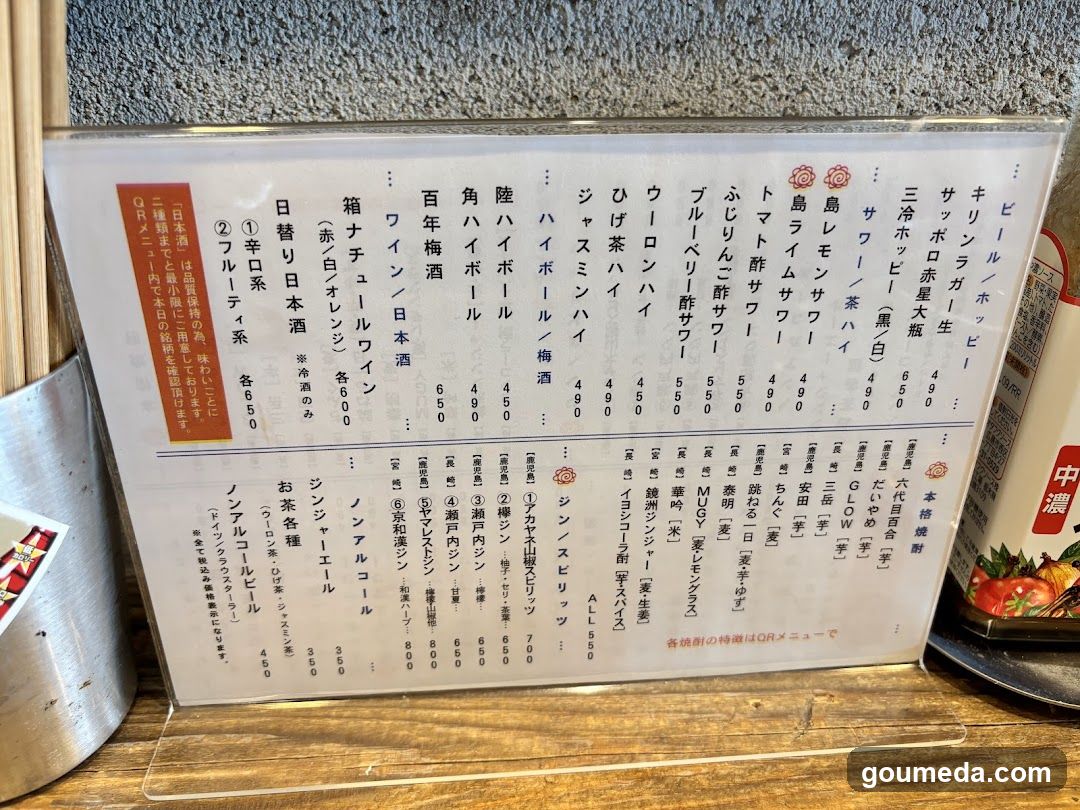 … ビール/ホッピー …
キリンラガー生 490
サッポロ赤星大瓶 650
三冷ホッピー(黒/白) 490
… サワー/茶ハイ …
島レモンサワー 490
島ライムサワー 490
トマト酢サワー 550
ふじりんご酢サワー 550
ブルーベリー酢サワー 550
ウーロンハイ 450
ひげ茶ハイ 490
ジャスミンハイ 490
… ハイボール/梅酒 …
陸ハイボール 450
角ハイボール 490
百年梅酒 650
… ワイン/日本酒 …
箱ナチュールワイン
(赤/白/オレンジ) 各600
日替り日本酒 ※冷酒のみ
①辛口系
②フルーティ系 各650
「日本酒」は品質保持の為、味わいごとに
二種類までと最小限にご用意しております。
QRメニュー内で本日の銘柄を確認頂けます。
… 本格焼酎 …
[鹿児島] 六代目百合 [芋]
[鹿児島] だいやめ [芋]
[鹿児島] GLOW [芋]
[長崎] 三岳 [芋]
[鹿児島] 安田 [芋]
[宮崎] ちんぐ [麦]
[鹿児島] 跳ねる一日 [麦・芋・ゆず]
[長崎] 泰明 [麦]
[長崎] MUGY [麦・レモングラス]
[長崎] 華吟 [米]
[宮崎] 鏡洲ジンジャー [麦・生姜]
[長崎] イヨシコーラ酎 [芋・スパイス]
ALL550
各焼酎の特徴はQRメニューで
… ジン/スピリッツ …
[鹿児島] ①アカヤネ山椒スピリッツ 700
[鹿児島] ②欅ジン …柚子・セリ・茶葉… 650
[鹿児島] ③瀬戸内ジン …檸檬… 650
[長崎] ④瀬戸内ジン …甘夏… 650
[鹿児島] ⑤ヤマレストジン …檸檬山椒他… 800
[宮崎] ⑥京和漢ジン …和漢ハーブ… 800
… ノンアルコール …
ジンジャーエール 350
お茶各種 350
(ウーロン茶・ひげ茶・ジャスミン茶)
ノンアルコールビール 450
(ドイツ/クラウスターラー)
※全て税込み価格表示になります。
中濃
goumeda.com